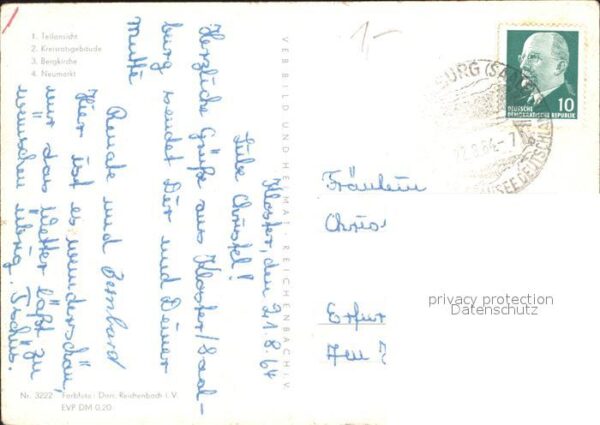 1. Teilansicht
2. Kreisratsgebäude
3. Bergkirche
4. Neumarkt
Kloster, den 21.8.64
Liebe Christel!
Herzliche Grüße aus Kloster/Saal-
burg sendet Dir und Deiner
Mutti
Renate und Bernhard
Hier ist es wunderschön,
nur das Wetter läßt zu
wünschen übrig. Tschüs.
VEB BILD UND HEIMAT · REICHENBACH i. V.
Nr. 3222 Farbfoto: Darr, Reichenbach i. V.
EVP DM 0,20
1,-
DEUTSCHE
DEMOKRATISCHE REPUBLIK
10
BURG (SAALE)
22.8.64.-7
Fräulein
Chris
Erfur
privacy protection
Datenschutz